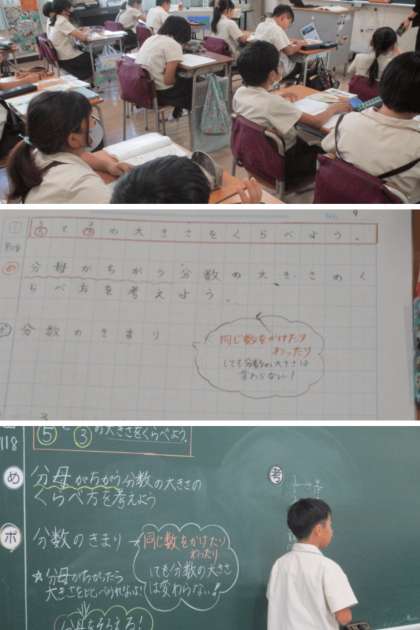 の大きさをくらべよう。
め 分母がちがう分数の大きさのく
らべ方を考えよう。
分数のきまり
同じ数をかけたり
わったり
しても分数の大きさは
変わらない！
118
⑤と③の大きさをくらべよう。
め 分母がちがう分数の大きさの
くらべ方を考えよう
ポ 分数のきまり
同じ数をかけたり
わったり
しても分数の大きさ
は変わらない！
☆分母がちがったら
大きさを比べられないよ！
分母をそろえる！
考